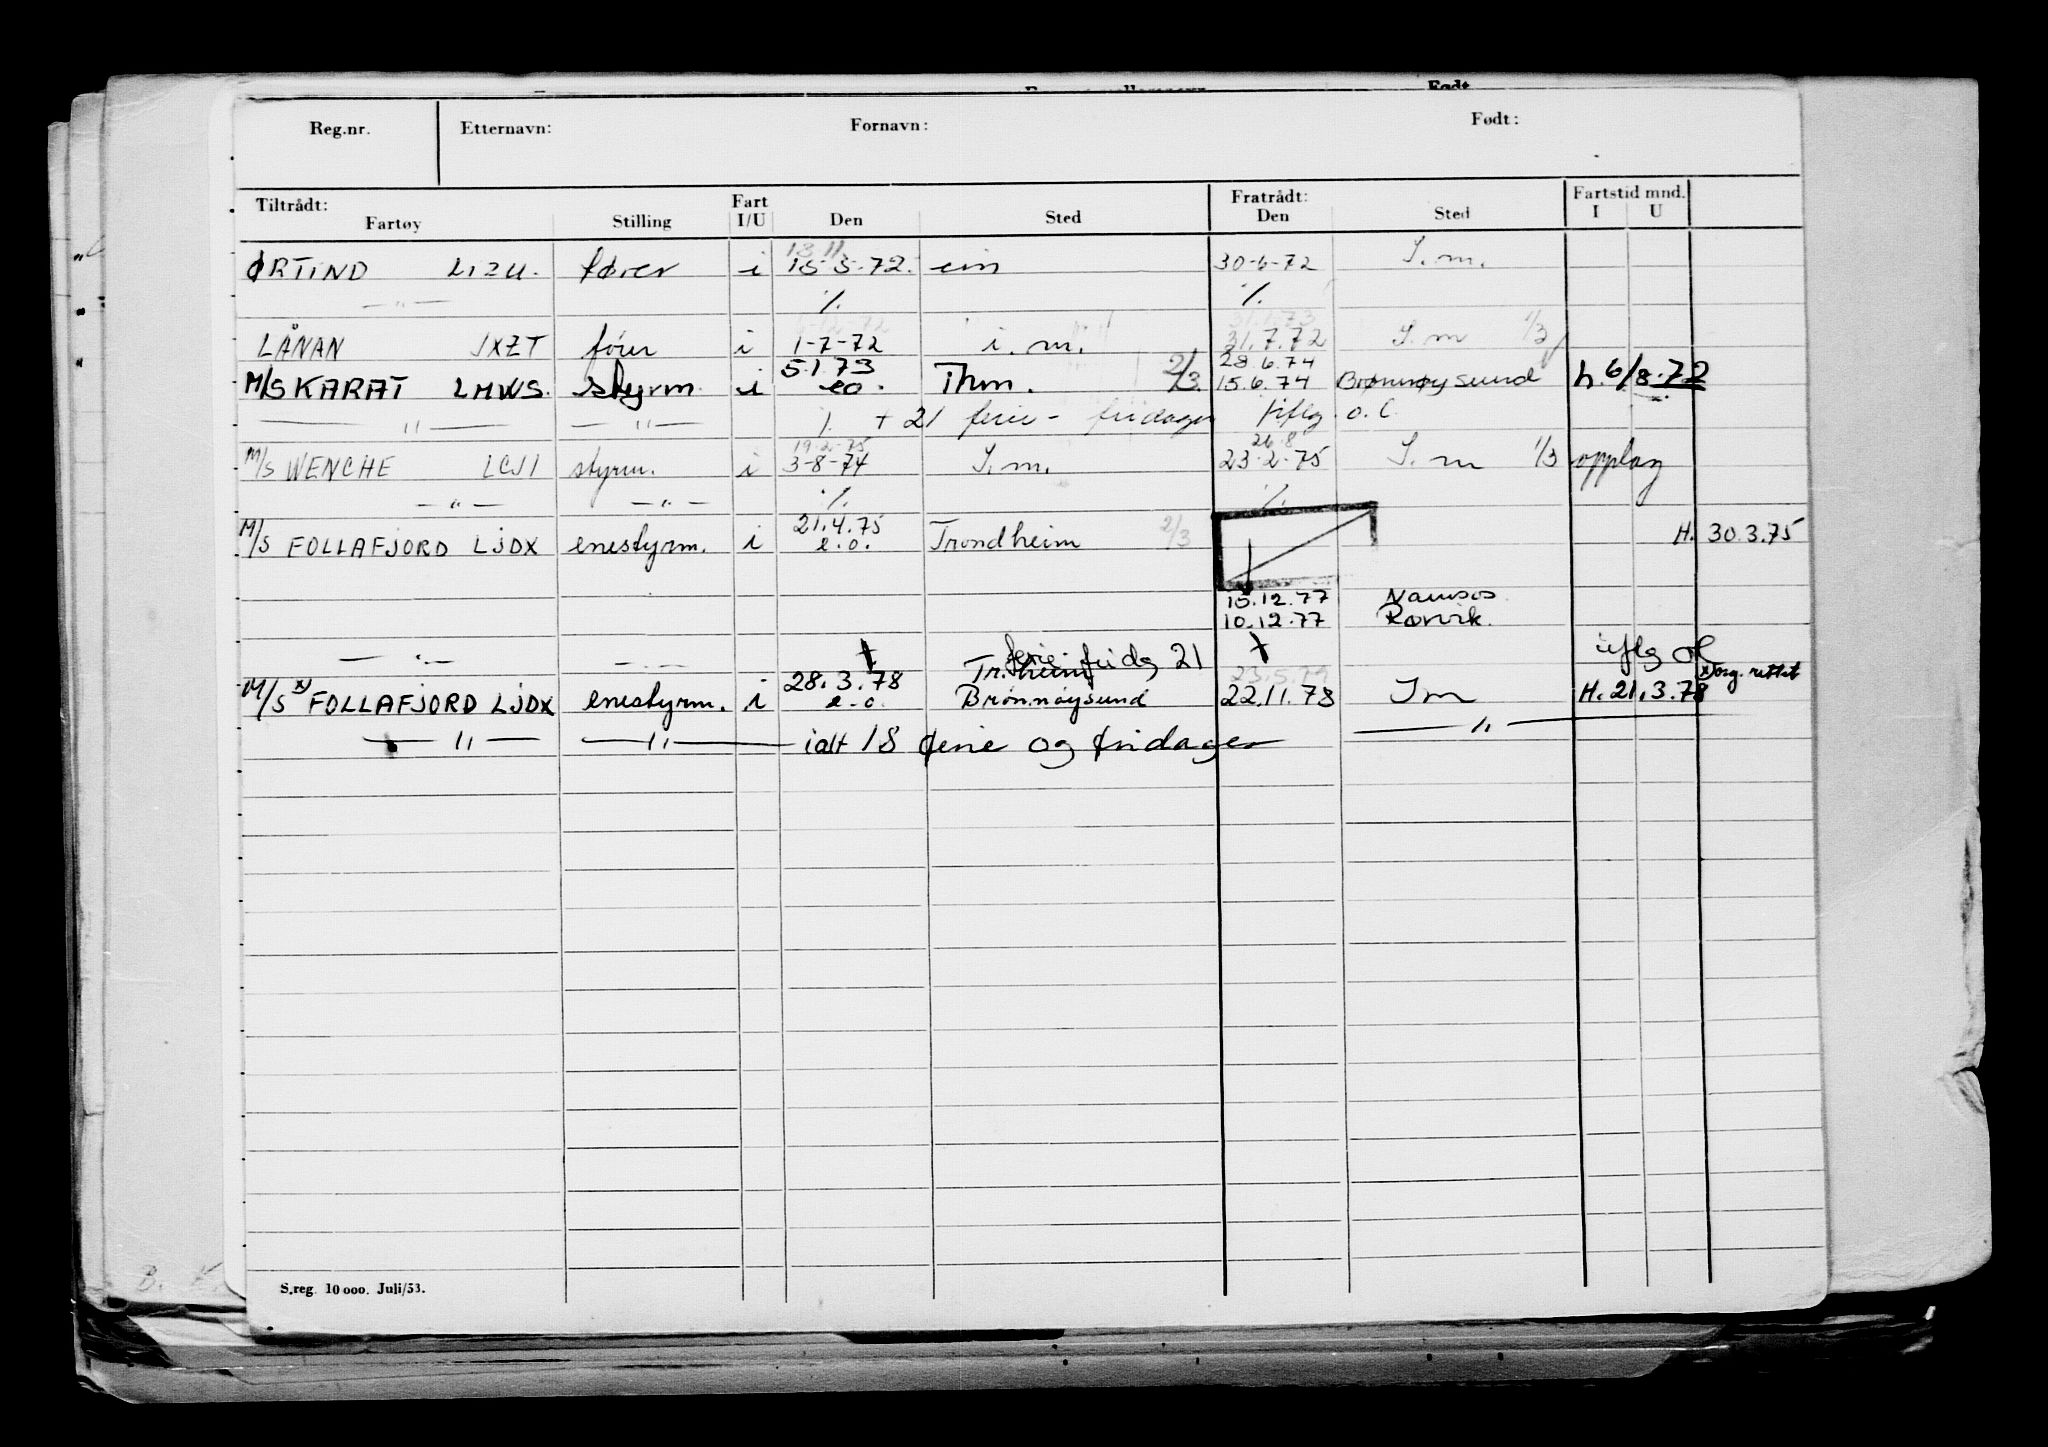 Født
Reg.nr. Etternavn: Fornavn: Født:
Tiltrådt: Fart Fratrådt: Fartstid mnd.
Fartøy Stilling I/U Den Sted Den Sted I U
13 11
ØRTIND LIZU. fører i 15-5-72. em 30-6-72 I.m.
— " — % %
LÅNAN JXZT fører i 1-7-72 i.m. 31.7.72 I.m 1/3
5.1.73 28.6.74
M/S KARAT LMWS. styrm. i eo. Thm. 2/3. 15.6.74 Brønnøysund h. 6/8.72
— " — — " — % + 21 ferie - fridager iflg. o.l.
19.2.75 26.8
M/S WENCHE LCJI styrm. i 3-8-74 I.m. 23.2.75 I.m 1/3 opplag
— " — — " — % %
21.4.75
M/S FOLLAFJORD LJDX enestyrm. i e.o. Trondheim 2/3 H. 30.3.75
15.12.77 Namsos
10.12.77 Rørvik.
— " — — " — ferie. fridg 21 iflg ol
28.3.78 Tr.heim 23.5.79 x) org. rettet
M/S x) FOLLAFJORD LJDX enestyrm. i e.o. Brønnøysund 22.11.78 Im H. 21.3.78
— " — — " — ialt 18 ferie og fridager — " —
S.reg. 10 000. Juli/53.